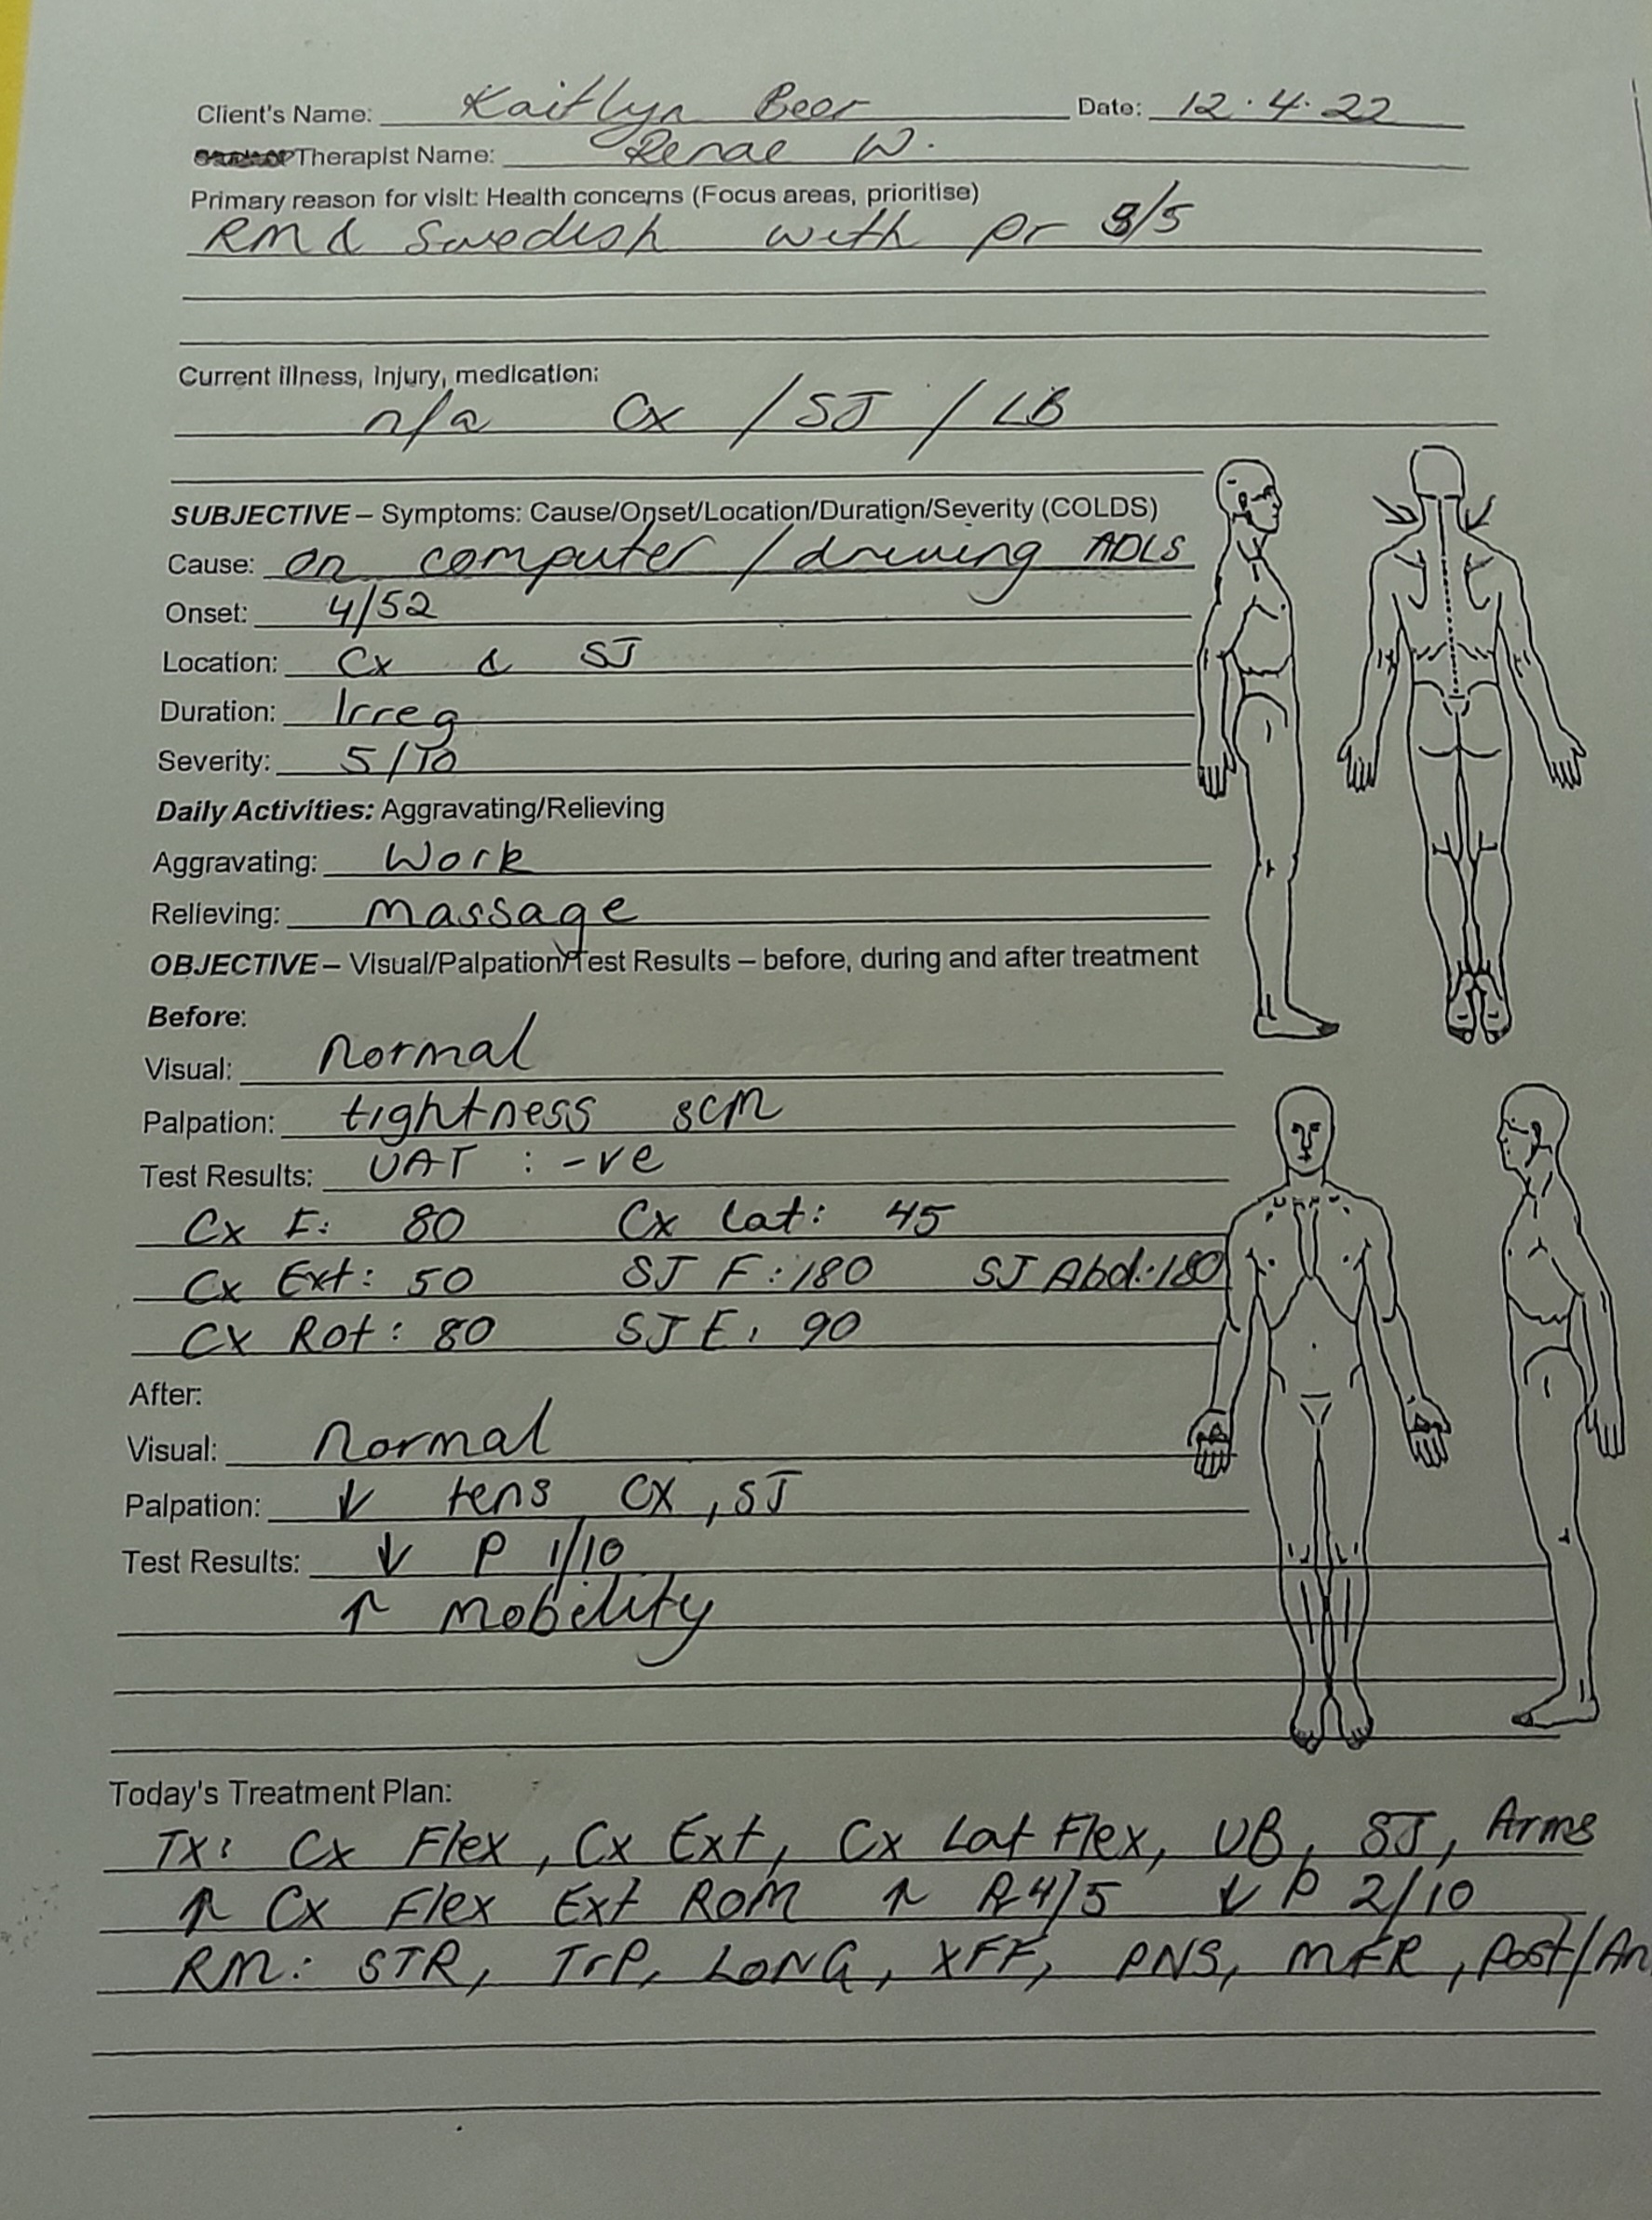 Client's Name: Kaitlyn Beer Date: 12.4.22
Therapist Name: Renae W.
Primary reason for visit: Health concerns (Focus areas, prioritise)
RM & Swedish with pr 3/5
Current illness, injury, medication:
n/a Cx / SJ / LB
SUBJECTIVE – Symptoms: Cause/Onset/Location/Duration/Severity (COLDS)
Cause: on computer / driving ADLS
Onset: 4/52
Location: Cx & SJ
Duration: Irreg
Severity: 5/10
Daily Activities: Aggravating/Relieving
Aggravating: Work
Relieving: Massage
OBJECTIVE – Visual/Palpation/Test Results – before, during and after treatment
Before:
Visual: Normal
Palpation: tightness scm
Test Results: VAT : -ve
Cx F: 80 Cx Lat: 45
Cx Ext: 50 SJ F: 180 SJ Abd: 180
Cx Rot: 80 SJ E: 90
After:
Visual: Normal
Palpation: ↓ tens CX, SJ
Test Results: ↓ P 1/10
↑ Mobility
Today's Treatment Plan:
TX: Cx Flex, Cx Ext, Cx Lat Flex, UB, SJ, Arms
↑ Cx Flex Ext ROM ↑ 4/5 ↓ P 2/10
RM: STR, TrP, LONG, XFF, PNS, MFR, Post/An